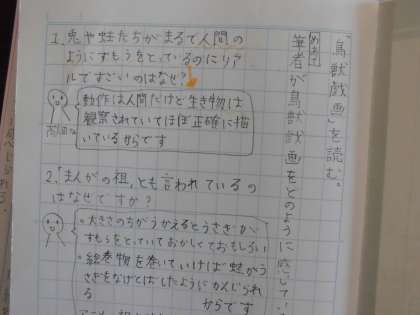 「鳥獣戯画」を読む。
めあて
筆者が鳥獣戯画をどのように感じてい
1.兎や蛙たちがまるで人間の
ようにすもうをとっているのにリア
ルですごいのはなぜ?
動作は人間だけど生き物は
観察されていてほぼ正確に描
いているからです
2.「まんがの祖」とも言われているの
はなぜですか?
・大きさのちがうかえるとうさぎが
すもうをとっていておかしくておもしろい
・絵巻物を巻いていけば蛙がう
さぎをなげとばしたようにかんじられ
る
からです